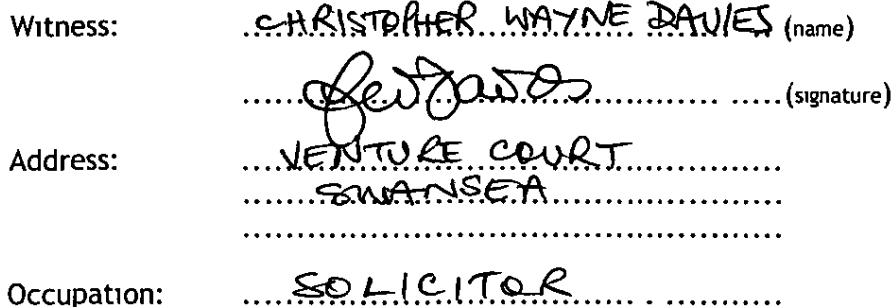 Witness: CHRISTOPHER WAYNE DAVIES (name)
(signature)
Address: VENTURE COURT
SWANSEA
Occupation: SOLICITOR